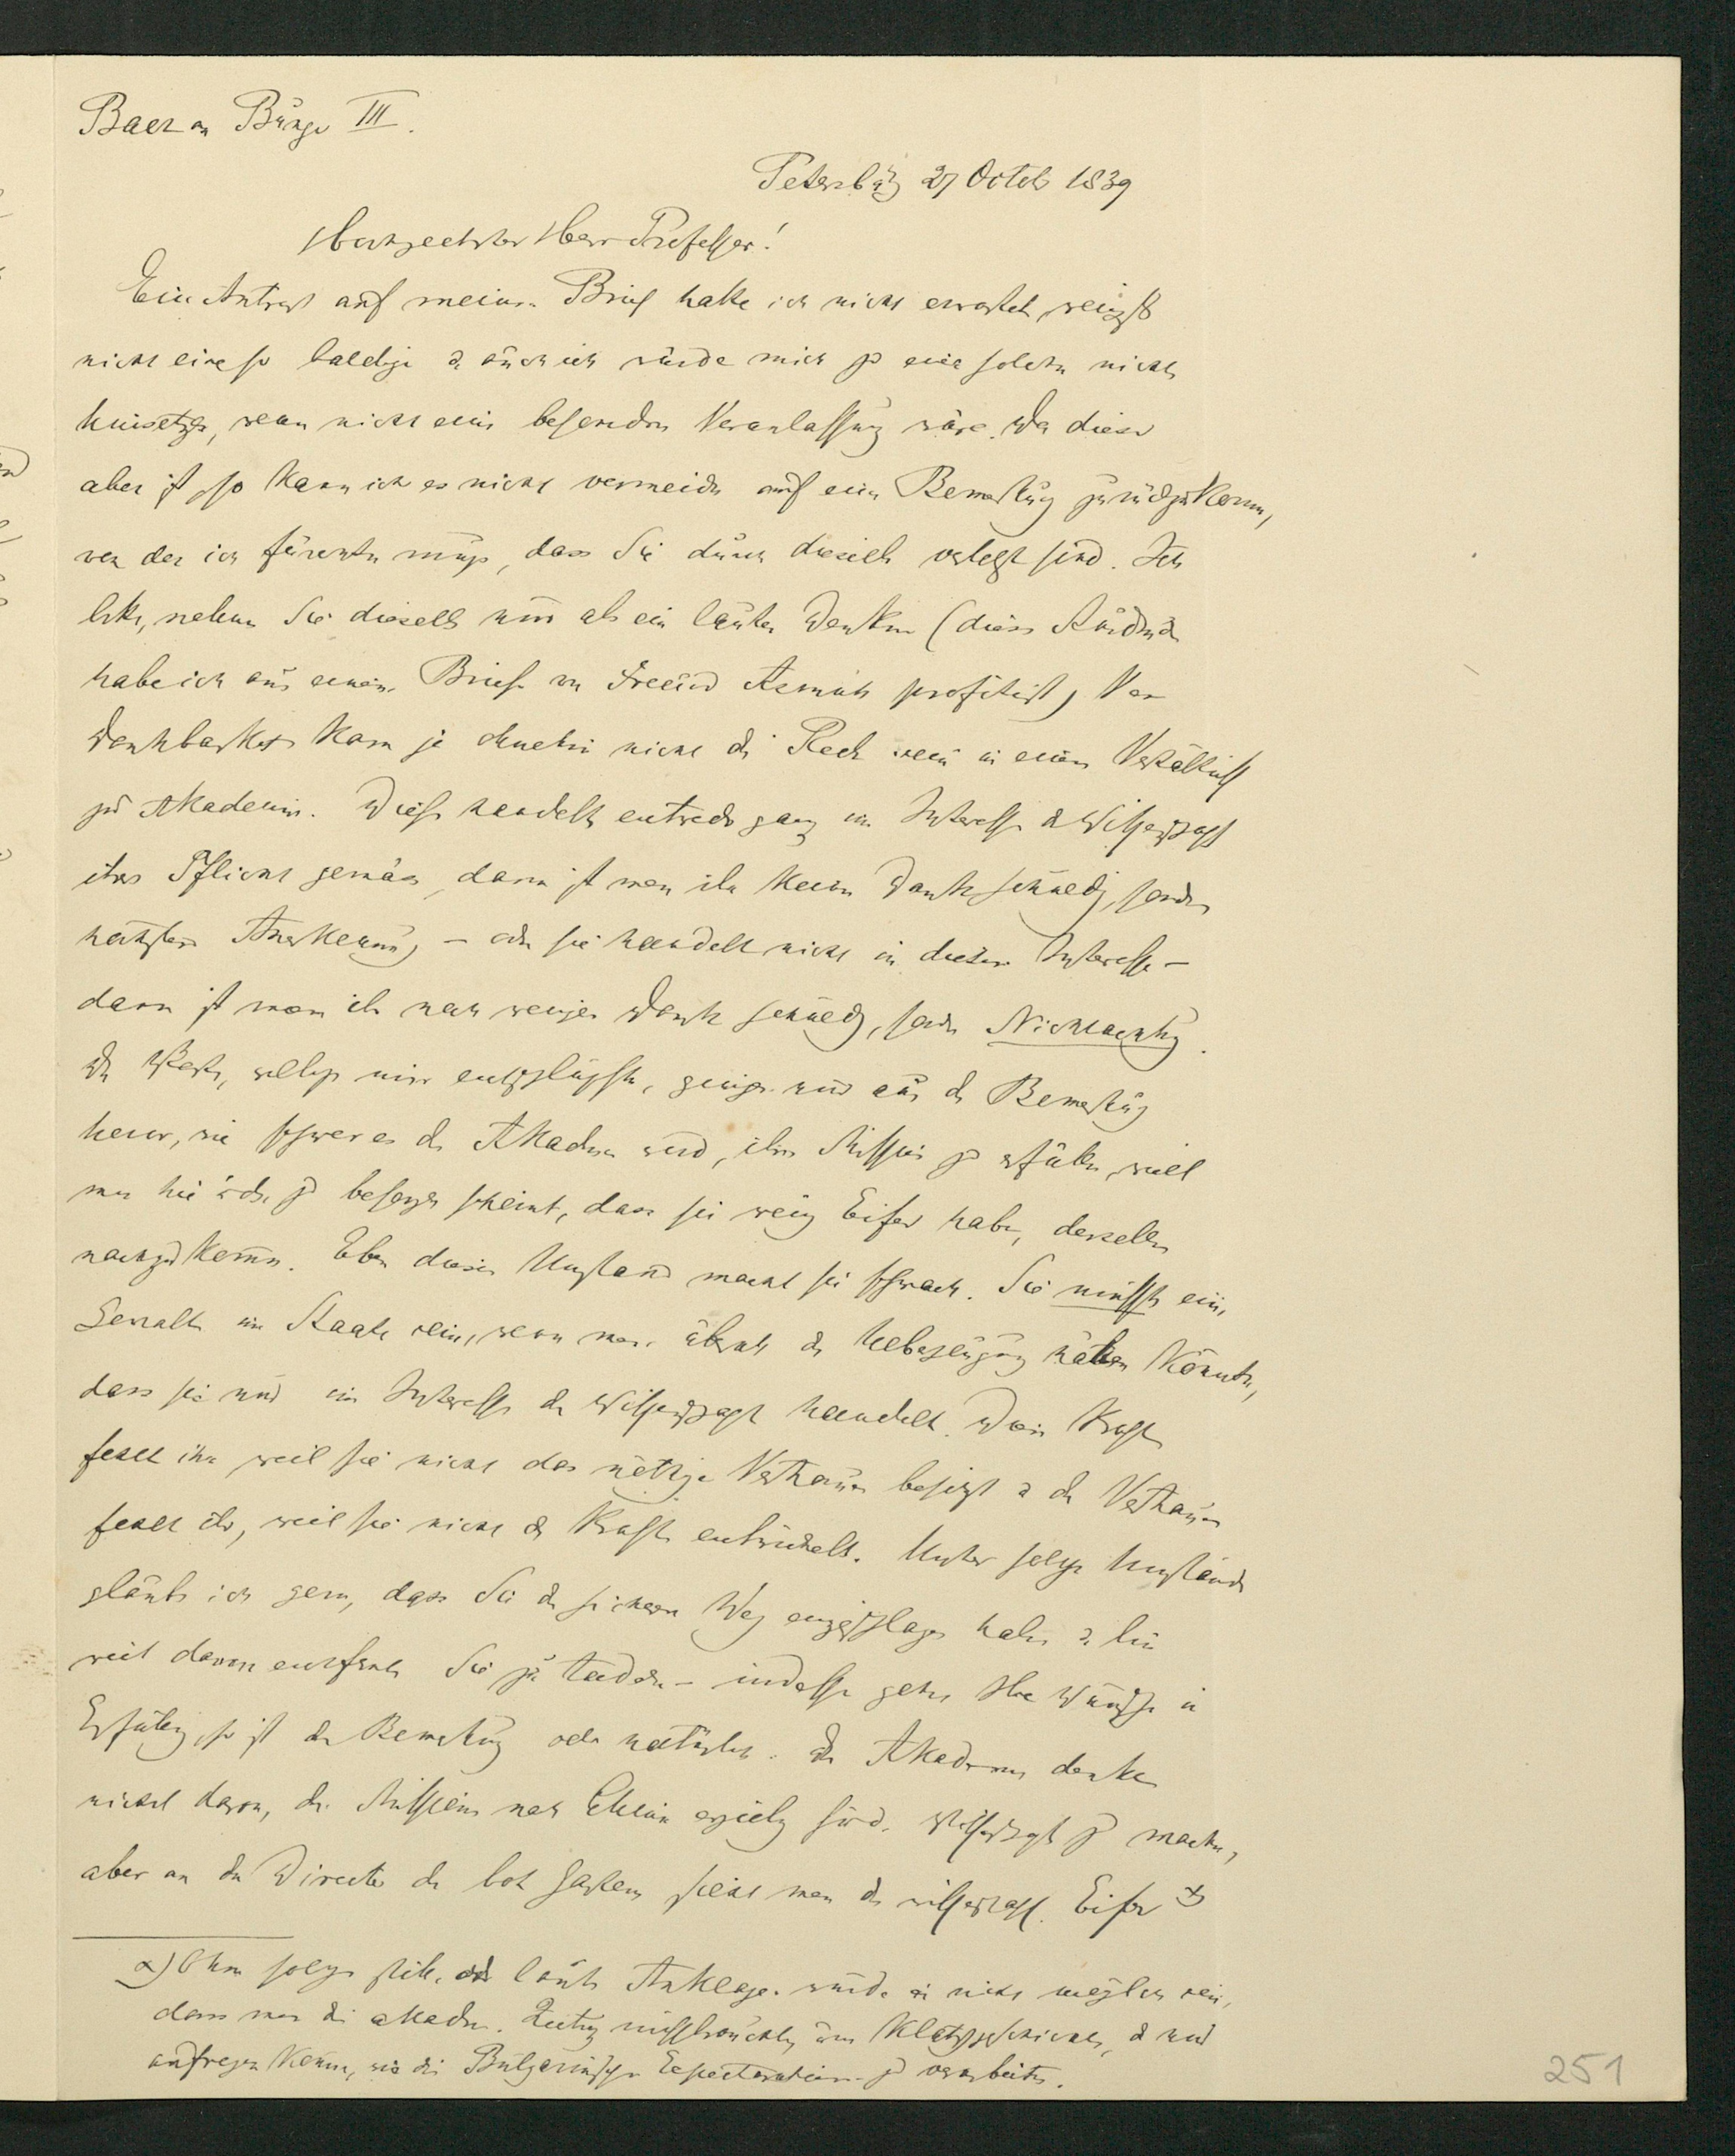 Baer an Bunge III.
Petersburg 27 Octob 1839
Hochgeehrter Herr Professor!
Eine Antwort auf meinen Brief hatte ich nicht erwartet, wenigst
nicht eine so baldige & auch ich würde mich zu eine solchen nicht
hinsetzen, wenn nicht eine besondere Veranlassung wäre. Da diese
aber ist, so kann ich es nicht vermeiden auf eine Bemerkung zurückzukommen,
von der ich fürchten muss, dass Sie durch dieselbe verletzt sind. Ich
bitte, nehmen Sie dieselbe nur als ein lautes Denken (diesen Ausdruck
habe ich aus einem Briefe von Freund Asmuth profitirt) Von
Dankbarkeit kann ja ohnehin nicht die Rede sein in einem Verhältniss
zur Akademie. Diese handelt entweder ganz im Interesse der Wissenschaft
ihrer Pflicht gemäss, dann ist man ihr keinen Dank schuldig, sondern
höchstens Anerkennung – oder sie handelt nicht in diesem Interesse –
dann ist man ihr noch weniger Dank schuldig, sondern Nichtachtung.
Die Worte, welche mir entschlüpften, gingen nur aus der Bemerkung
hervor, wie schwer es der Akademie wird, ihre Mission zu erfüllen, weil
man hie und da zu besorgen scheint, dass sie wenig Eifer habe, derselben
nachzukommen. Eben dieser Umstand macht sie schwach. Sie müsste eine
Gewalt im Staate sein, wenn man überall die Ueberzeugung haben könnte,
dass sie nur im Interesse der Wissenschaft handelt. Diese Kraft
fehlt ihr weil sie nicht das nöthige Vertrauen besitzt & das Vertrauen
fehlt ihr, weil sie nicht die Kraft entwickelt. Unter solchen Umständen
glaube ich gern, dass Sie den sichern Weg eingeschlagen haben & bin
weit davon entfernt Sie zu tadeln – indessen gehen Ihre Wünsche in
Erfüllung, so ist die Bemerkung auch natürlich. Die Akademie denke
nicht daran, die Mission nach China ergiebig für die Wissenschaft zu machen,
aber an den Director des bot Gartens sieht man den wissenschaftl. Eifer x)
x) Ohne solche stille oder laute Anklage würde es nicht möglich sein,
dass man die akadem. Zeitung missbrauchte, um Klatschgeschichten, & hat
aufregen können, wie die Bulgarinschen Expectorationen zu verarbeiten.
251